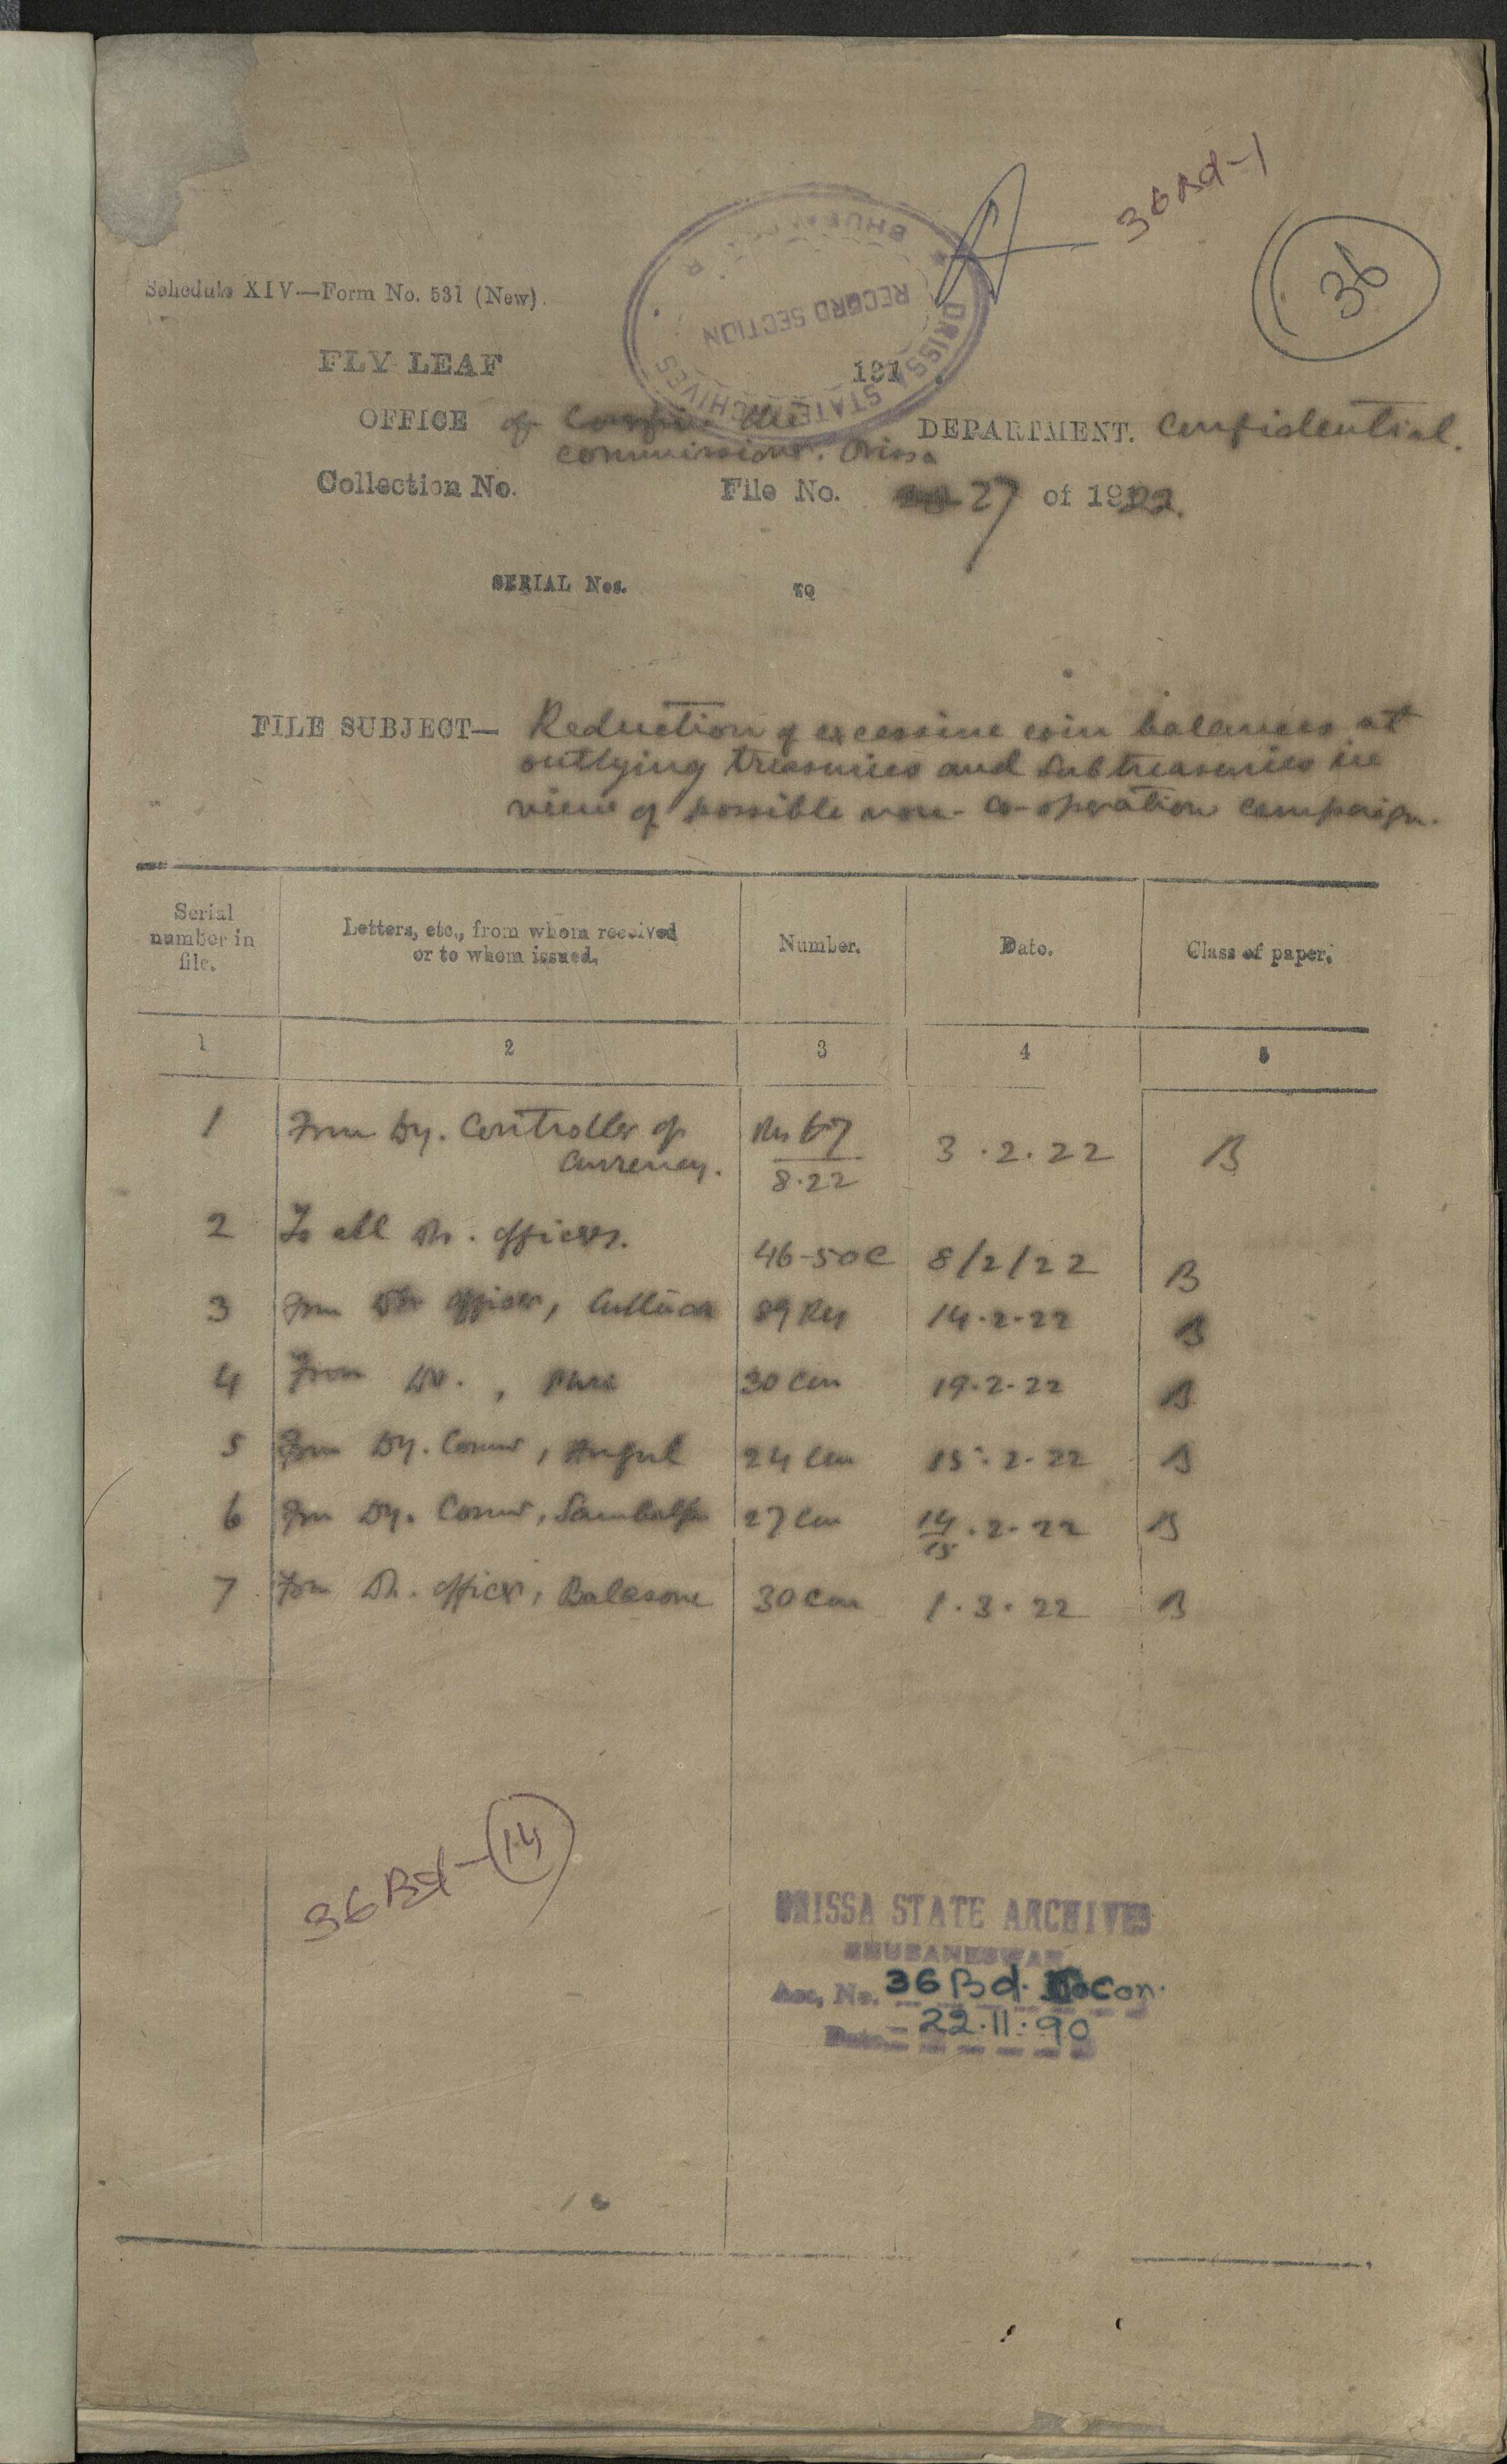 36 Bd-1
36
ORISSA STATE ARCHIVES
RECORD SECTION
Schedule XIV—Form No. 531 (New).
FLY LEAF 191 .
OFFICE of the DEPARTMENT. Confidential.
Commissioner. Orissa
Collection No. File No. 27 of 1922.
SERIAL Nos. TO
FILE SUBJECT— Reduction of excessive coin balances at
outlying treasuries and subtreasuries in
view of possible non-co-operation campaign.
Serial number in file. Letters, etc., from whom received or to whom issued. Number. Date. Class of paper.
1 2 3 4 5
1 From Dy. Controller of Currency. 67/8.22 3.2.22 B
2 To all officers. 46-50C 8/2/22 B
3 From officer, Cuttack 89 14.2.22 B
4 From Do., 30 Con 19.2.22 B
5 From Dy. Comr, Angul 24 Con 15.2.22 B
6 From Dy. Comr, Sambalpur 27 Con 14/15.2.22 B
7 From officer, Balasore 30 Con 1.3.22 B
36 Bd-14
ORISSA STATE ARCHIVES
BHUBANESWAR
Acc. No. 36 Bd. Con.
Date 22.11.90